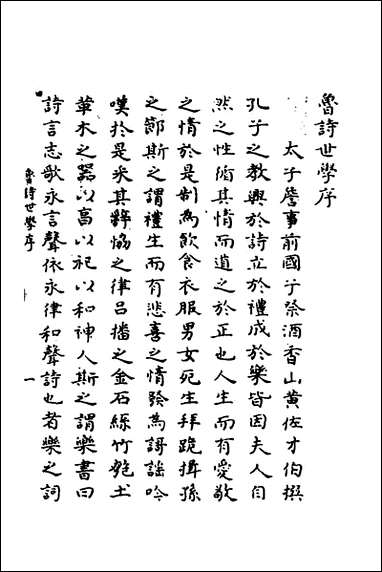 魯詩世學序
太子詹事前國子祭酒香山黃佐才伯撰
孔子之教興於詩立於禮成於樂皆因夫人自
然之性循其情而道之於正也人生而有愛敬
之情於是制為飲食衣服男女死生拜跪揖孫
之節斯之謂禮生而有悲喜之情發為謌謡吟
嘆於是采其辭協之律呂播之金石絲竹匏土
革木之器以享以祀以和神人斯之謂樂書曰
詩言志歌永言聲依永律和聲詩也者樂之詞
魯詩世學序
一